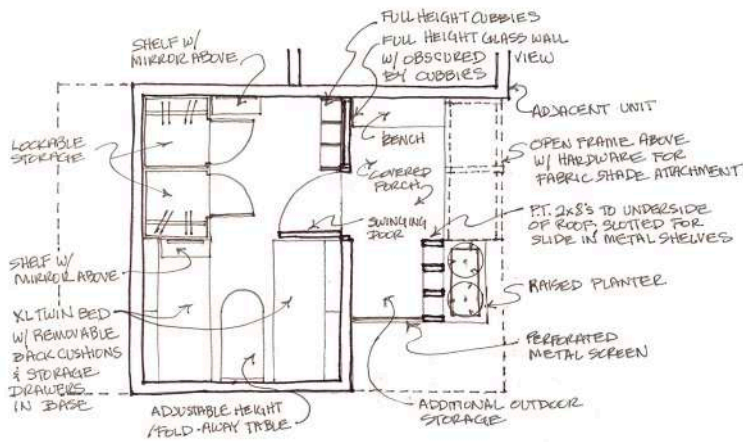 SHELF W/
MIRROR ABOVE
FULL HEIGHT CUBBIES
FULL HEIGHT GLASS WALL
W/ OBSCURED VIEW
BY CUBBIES
ADJACENT UNIT
LOCKABLE
STORAGE
BENCH
COVERED
PORCH
OPEN FRAME ABOVE
W/ HARDWARE FOR
FABRIC SHADE ATTACHMENT
SWINGING
DOOR
P.T. 2x8'S TO UNDERSIDE
OF ROOF, SLOTTED FOR
SLIDE IN METAL SHELVES
SHELF W/
MIRROR ABOVE
RAISED PLANTER
XL TWIN BED
W/ REMOVABLE
BACK CUSHIONS
& STORAGE
DRAWERS
IN BASE
PERFORATED
METAL SCREEN
ADJUSTABLE HEIGHT
/FOLD-AWAY TABLE
ADDITIONAL OUTDOOR
STORAGE